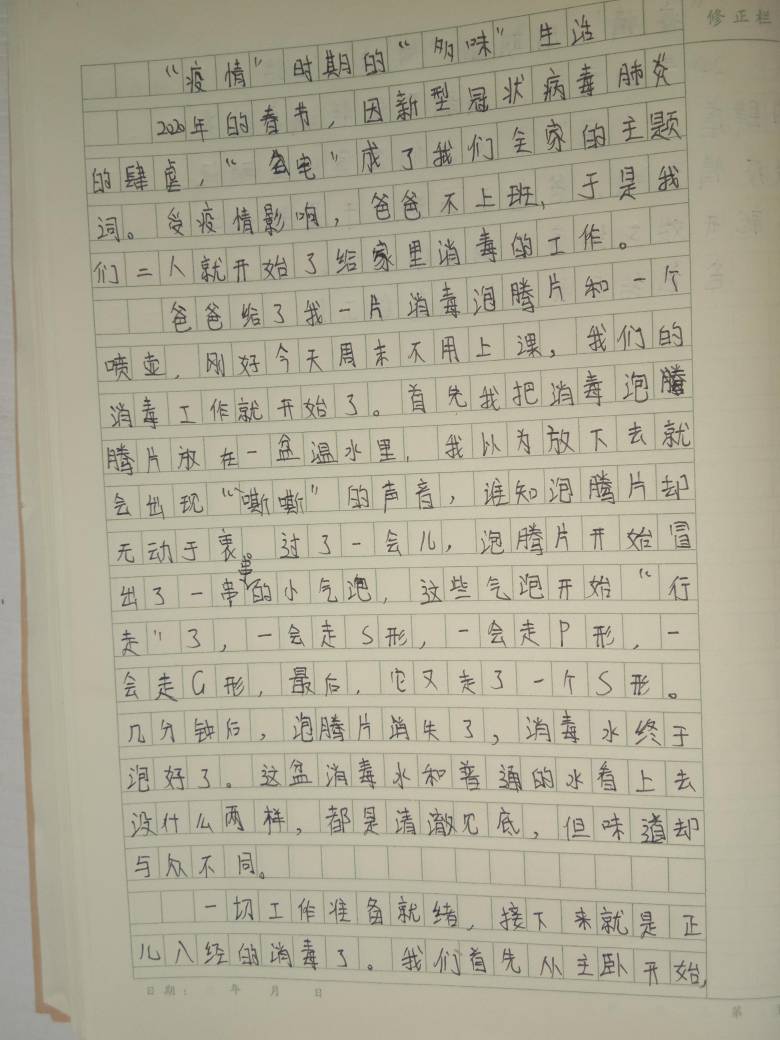 修正栏
“疫情”时期的“多味”生活
2020年的春节，因新型冠状病毒肺炎
的肆虐，“宅”成了我们全家的主题
词。受疫情影响，爸爸不上班，于是我
们二人就开始了给家里消毒的工作。
爸爸给了我一片消毒泡腾片和一个
喷壶，刚好今天周末不用上课，我们的
消毒工作就开始了。首先我把消毒泡腾
腾片放在一盆温水里，我以为放下去就
会出现“嘶嘶”的声音，谁知泡腾片却
无动于衷。过了一会儿，泡腾片开始冒
出了一串串的小气泡，这些气泡开始“行
走”了，一会走S形，一会走P形，一
会走G形，最后，它又走了一个S形。
几分钟后，泡腾片消失了，消毒水终于
泡好了。这盆消毒水和普通的水看上去
没什么两样，都是清澈见底，但味道却
与众不同。
一切工作准备就绪，接下来就是正
儿八经的消毒了。我们首先从主卧开始，
日期： 年 月 日
第